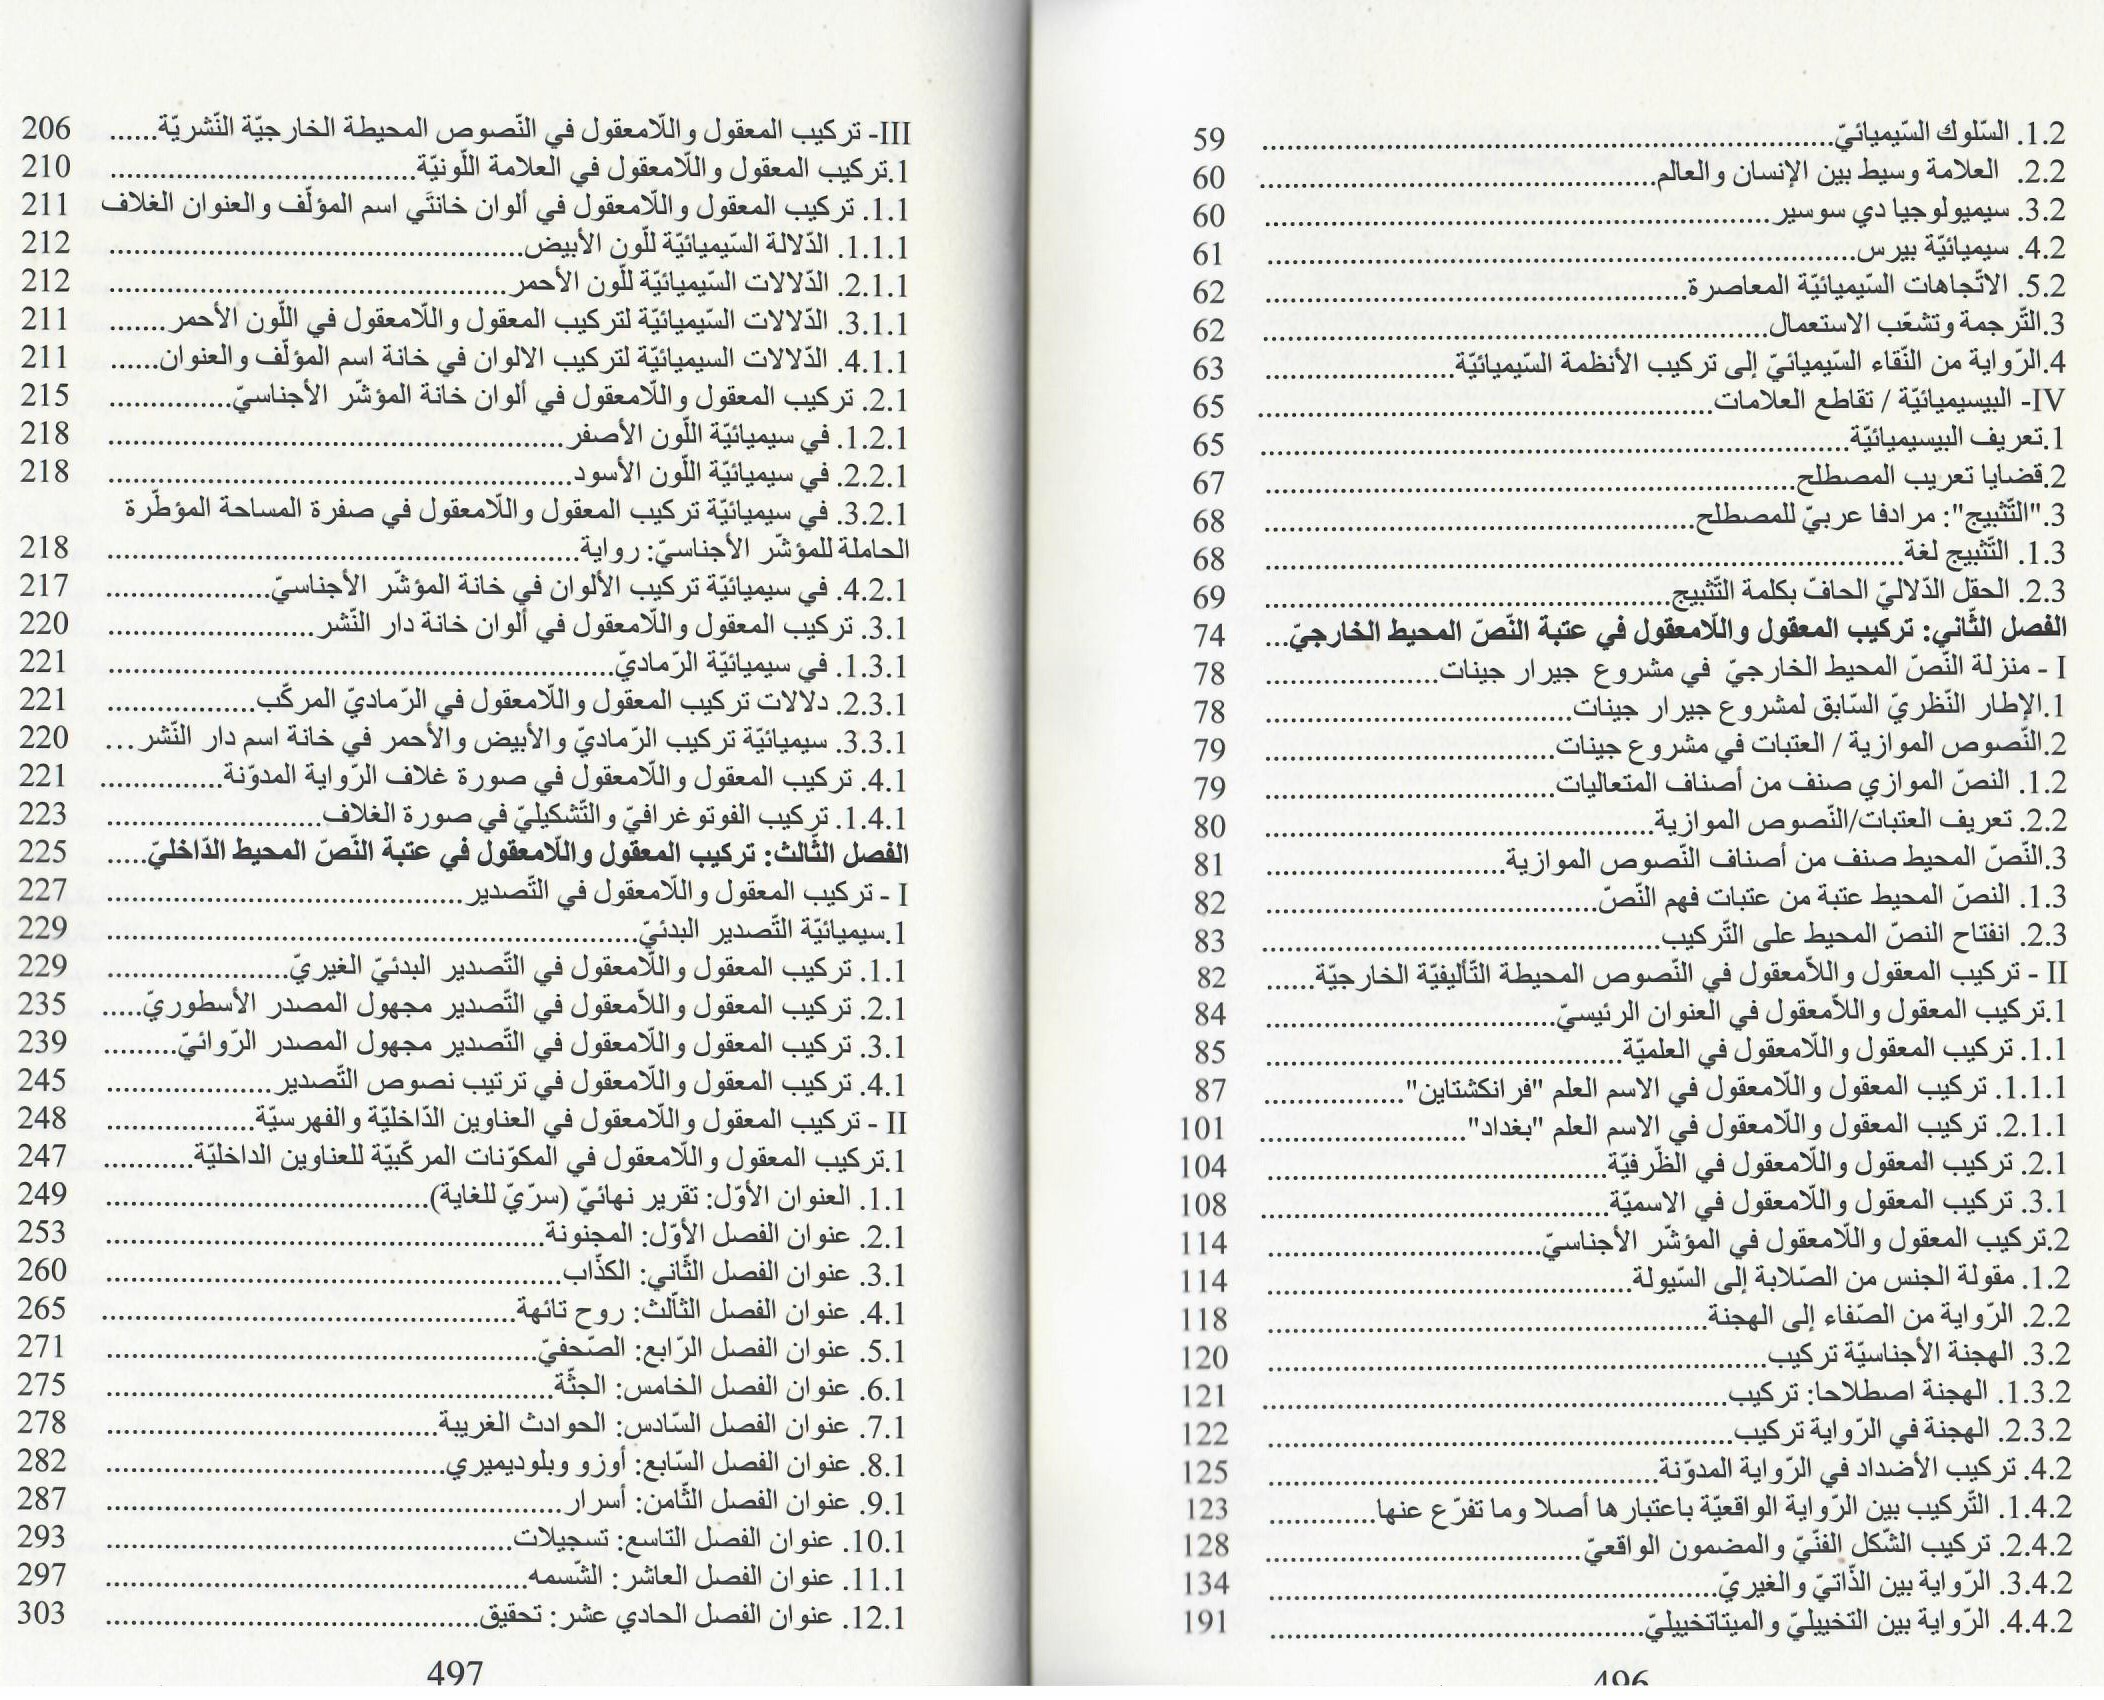 1.2. السّلوك السّيميائيّ........ 59
2.2. العلامة وسيط بين الإنسان والعالم........ 60
3.2. سيميولوجيا دي سوسير........ 60
4.2. سيميائيّة بيرس........ 61
5.2. الاتّجاهات السّيميائيّة المعاصرة........ 62
3.التّرجمة وتشعّب الاستعمال........ 62
4.الرّواية من النّقاء السّيميائيّ إلى تركيب الأنظمة السّيميائيّة........ 63
IV- البيسيميائيّة / تقاطع العلامات........ 65
1.تعريف البيسيميائيّة........ 65
2.قضايا تعريب المصطلح........ 67
3."التّثبيج": مرادفا عربيّ للمصطلح........ 68
1.3. التّثبيج لغة........ 68
2.3. الحقل الدّلاليّ الحافّ بكلمة التّثبيج........ 69
الفصل الثّاني: تركيب المعقول واللّامعقول في عتبة النّصّ المحيط الخارجيّ... 74
I - منزلة النّصّ المحيط الخارجيّ في مشروع جيرار جينات........ 78
1.الإطار النّظريّ السّابق لمشروع جيرار جينات........ 78
2.النّصوص الموازية / العتبات في مشروع جينات........ 79
1.2. النصّ الموازي صنف من أصناف المتعاليات........ 79
2.2. تعريف العتبات/النّصوص الموازية........ 80
3.النّصّ المحيط صنف من أصناف النّصوص الموازية........ 81
1.3. النصّ المحيط عتبة من عتبات فهم النّصّ........ 82
2.3. انفتاح النصّ المحيط على التّركيب........ 83
II - تركيب المعقول واللّامعقول في النّصوص المحيطة التّأليفيّة الخارجيّة...... 82
1.تركيب المعقول واللّامعقول في العنوان الرئيسيّ........ 84
1.1. تركيب المعقول واللّامعقول في العلميّة........ 85
1.1.1. تركيب المعقول واللّامعقول في الاسم العلم "فرانكشتاين"........ 87
2.1.1. تركيب المعقول واللّامعقول في الاسم العلم "بغداد"........ 101
2.1. تركيب المعقول واللّامعقول في الظّرفيّة........ 104
3.1. تركيب المعقول واللّامعقول في الاسميّة........ 108
2.تركيب المعقول واللّامعقول في المؤشّر الأجناسيّ........ 114
1.2. مقولة الجنس من الصّلابة إلى السّيولة........ 114
2.2. الرّواية من الصّفاء إلى الهجنة........ 118
3.2. الهجنة الأجناسيّة تركيب........ 120
1.3.2. الهجنة اصطلاحا: تركيب........ 121
2.3.2. الهجنة في الرّواية تركيب........ 122
4.2. تركيب الأضداد في الرّواية المدوّنة........ 125
1.4.2. التّركيب بين الرّواية الواقعيّة باعتبارها أصلا وما تفرّع عنها........ 123
2.4.2. تركيب الشّكل الفنّيّ والمضمون الواقعيّ........ 128
3.4.2. الرّواية بين الذّاتيّ والغيريّ........ 134
4.4.2. الرّواية بين التخييليّ والميتاتخييليّ........ 191
496
III- تركيب المعقول واللّامعقول في النّصوص المحيطة الخارجيّة النّشريّة...... 206
1.تركيب المعقول واللّامعقول في العلامة اللّونيّة........ 210
1.1. تركيب المعقول واللّامعقول في ألوان خانتَي اسم المؤلّف والعنوان الغلاف 211
1.1.1. الدّلالة السّيميائيّة للّون الأبيض........ 212
2.1.1. الدّلالات السّيميائيّة للّون الأحمر........ 212
3.1.1. الدّلالات السّيميائيّة لتركيب المعقول واللّامعقول في اللّون الأحمر....... 211
4.1.1. الدّلالات السيميائيّة لتركيب الالوان في خانة اسم المؤلّف والعنوان...... 211
2.1. تركيب المعقول واللّامعقول في ألوان خانة المؤشّر الأجناسيّ........ 215
1.2.1. في سيميائيّة اللّون الأصفر........ 218
2.2.1. في سيميائيّة اللّون الأسود........ 218
3.2.1. في سيميائيّة تركيب المعقول واللّامعقول في صفرة المساحة المؤطّرة
الحاملة للمؤشّر الأجناسيّ: رواية........ 218
4.2.1. في سيميائيّة تركيب الألوان في خانة المؤشّر الأجناسيّ........ 217
3.1. تركيب المعقول واللّامعقول في ألوان خانة دار النّشر........ 220
1.3.1. في سيميائيّة الرّماديّ........ 221
2.3.1. دلالات تركيب المعقول واللّامعقول في الرّماديّ المركّب........ 221
3.3.1. سيميائيّة تركيب الرّماديّ والأبيض والأحمر في خانة اسم دار النّشر... 220
4.1. تركيب المعقول واللّامعقول في صورة غلاف الرّواية المدوّنة........ 221
1.4.1. تركيب الفوتوغرافيّ والتّشكيليّ في صورة الغلاف........ 223
الفصل الثّالث: تركيب المعقول واللّامعقول في عتبة النّصّ المحيط الدّاخليّ..... 225
I - تركيب المعقول واللّامعقول في التّصدير........ 227
1.سيميائيّة التّصدير البدئيّ........ 229
1.1. تركيب المعقول واللّامعقول في التّصدير البدئيّ الغيريّ........ 229
2.1. تركيب المعقول واللّامعقول في التّصدير مجهول المصدر الأسطوريّ..... 235
3.1. تركيب المعقول واللّامعقول في التّصدير مجهول المصدر الرّوائيّ........ 239
4.1. تركيب المعقول واللّامعقول في ترتيب نصوص التّصدير........ 245
II - تركيب المعقول واللّامعقول في العناوين الدّاخليّة والفهرسيّة........ 248
1.تركيب المعقول واللّامعقول في المكوّنات المركّبيّة للعناوين الداخليّة........ 247
1.1. العنوان الأوّل: تقرير نهائيّ (سرّيّ للغاية)........ 249
2.1. عنوان الفصل الأوّل: المجنونة........ 253
3.1. عنوان الفصل الثّاني: الكذّاب........ 260
4.1. عنوان الفصل الثّالث: روح تائهة........ 265
5.1. عنوان الفصل الرّابع: الصّحفيّ........ 271
6.1. عنوان الفصل الخامس: الجثّة........ 275
7.1. عنوان الفصل السّادس: الحوادث الغريبة........ 278
8.1. عنوان الفصل السّابع: أوزو وبلوديميري........ 282
9.1. عنوان الفصل الثّامن: أسرار........ 287
10.1. عنوان الفصل التاسع: تسجيلات........ 293
11.1. عنوان الفصل العاشر: الشّسمه........ 297
12.1. عنوان الفصل الحادي عشر: تحقيق........ 303
497